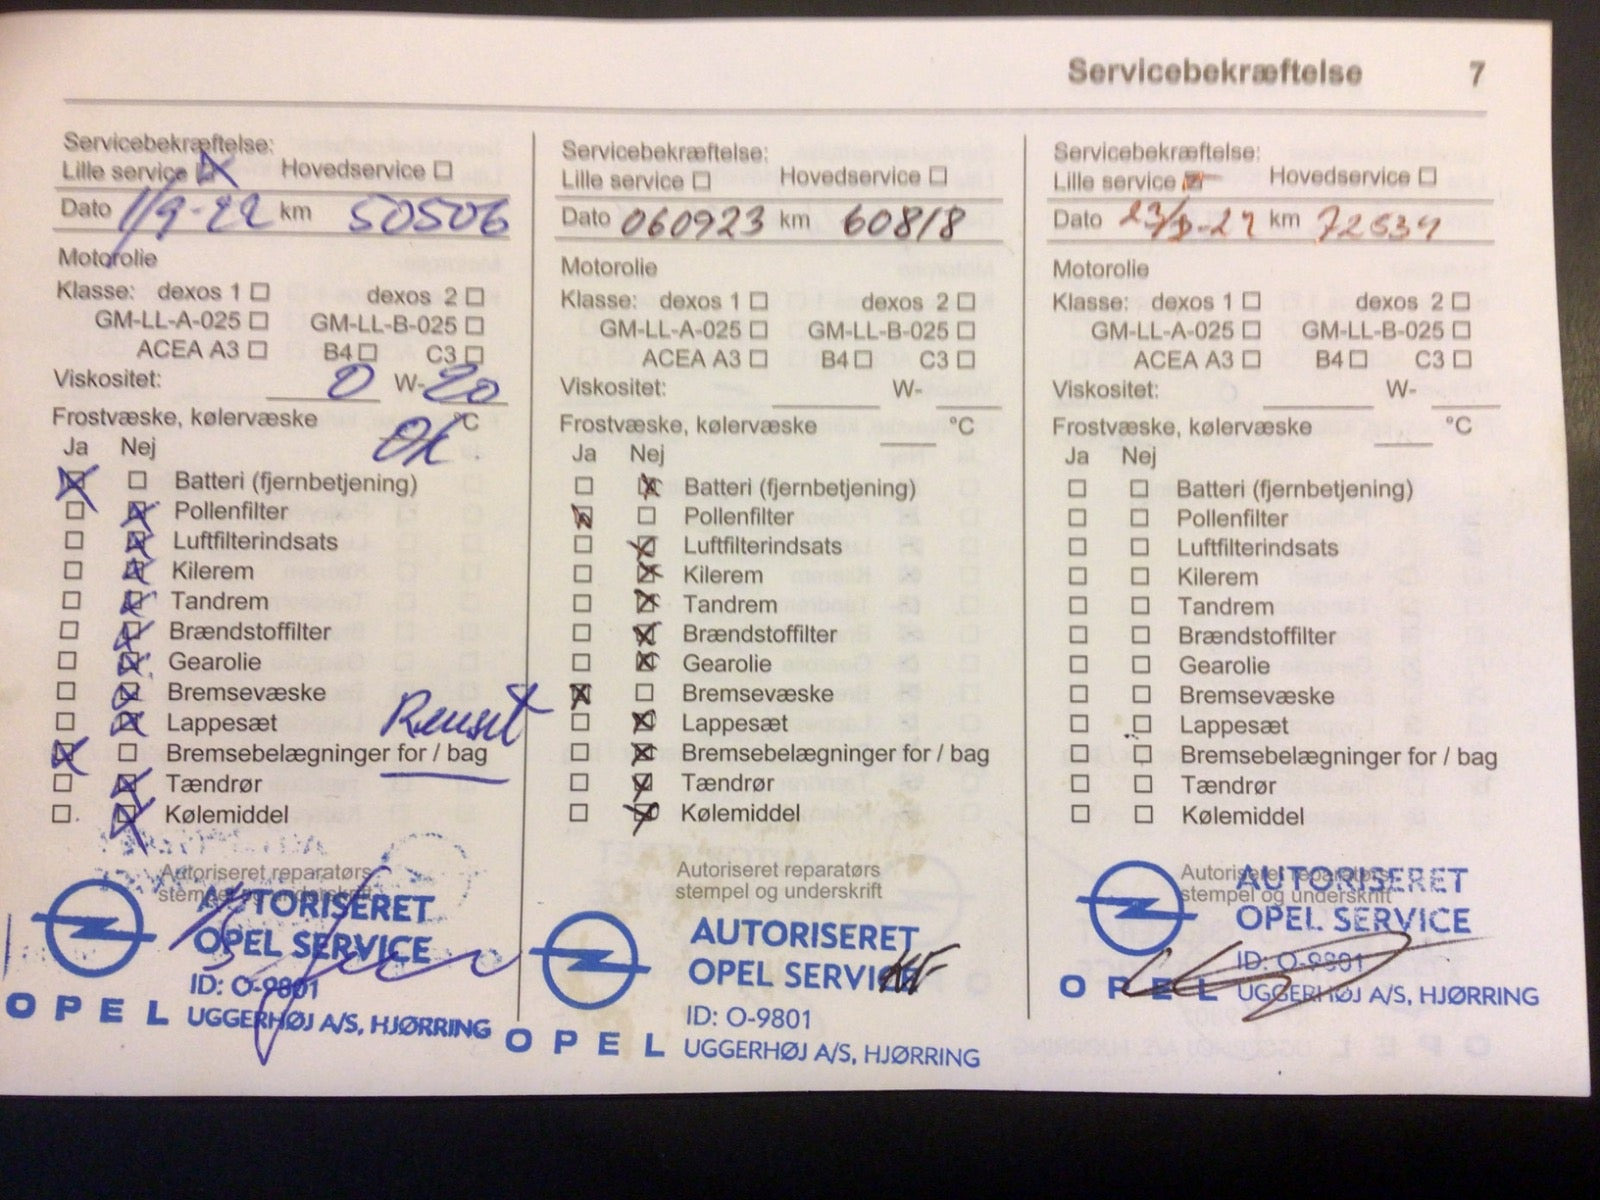 Servicebekræftelse 7
Servicebekræftelse:
Lille service Hovedservice
Dato 1/9-22 km 50506
Motorolie
Klasse: dexos 1 dexos 2
GM-LL-A-025 GM-LL-B-025
ACEA A3 B4 C3
Viskositet: 0 W-20
Frostvæske, kølervæske OK °C
Ja Nej
Batteri (fjernbetjening)
Pollenfilter
Luftfilterindsats
Kilerem
Tandrem
Brændstoffilter
Gearolie
Bremsevæske
Lappesæt
Renset
Bremsebelægninger for / bag
Tændrør
Kølemiddel
Autoriseret reparatørs
stempel og underskrift
AUTORISERET
OPEL SERVICE
ID: O-9801
OPEL UGGERHØJ A/S, HJØRRING
Servicebekræftelse:
Lille service Hovedservice
Dato 060923 km 60818
Motorolie
Klasse: dexos 1 dexos 2
GM-LL-A-025 GM-LL-B-025
ACEA A3 B4 C3
Viskositet: W-
Frostvæske, kølervæske °C
Ja Nej
Batteri (fjernbetjening)
Pollenfilter
Luftfilterindsats
Kilerem
Tandrem
Brændstoffilter
Gearolie
Bremsevæske
Lappesæt
Bremsebelægninger for / bag
Tændrør
Kølemiddel
Autoriseret reparatørs
stempel og underskrift
AUTORISERET
OPEL SERVICE
ID: O-9801
OPEL UGGERHØJ A/S, HJØRRING
Servicebekræftelse:
Lille service Hovedservice
Dato km
Motorolie
Klasse: dexos 1 dexos 2
GM-LL-A-025 GM-LL-B-025
ACEA A3 B4 C3
Viskositet: W-
Frostvæske, kølervæske °C
Ja Nej
Batteri (fjernbetjening)
Pollenfilter
Luftfilterindsats
Kilerem
Tandrem
Brændstoffilter
Gearolie
Bremsevæske
Lappesæt
Bremsebelægninger for / bag
Tændrør
Kølemiddel
Autoriseret reparatørs
stempel og underskrift
AUTORISERET
OPEL SERVICE
ID: O-9801
OPEL UGGERHØJ A/S, HJØRRING